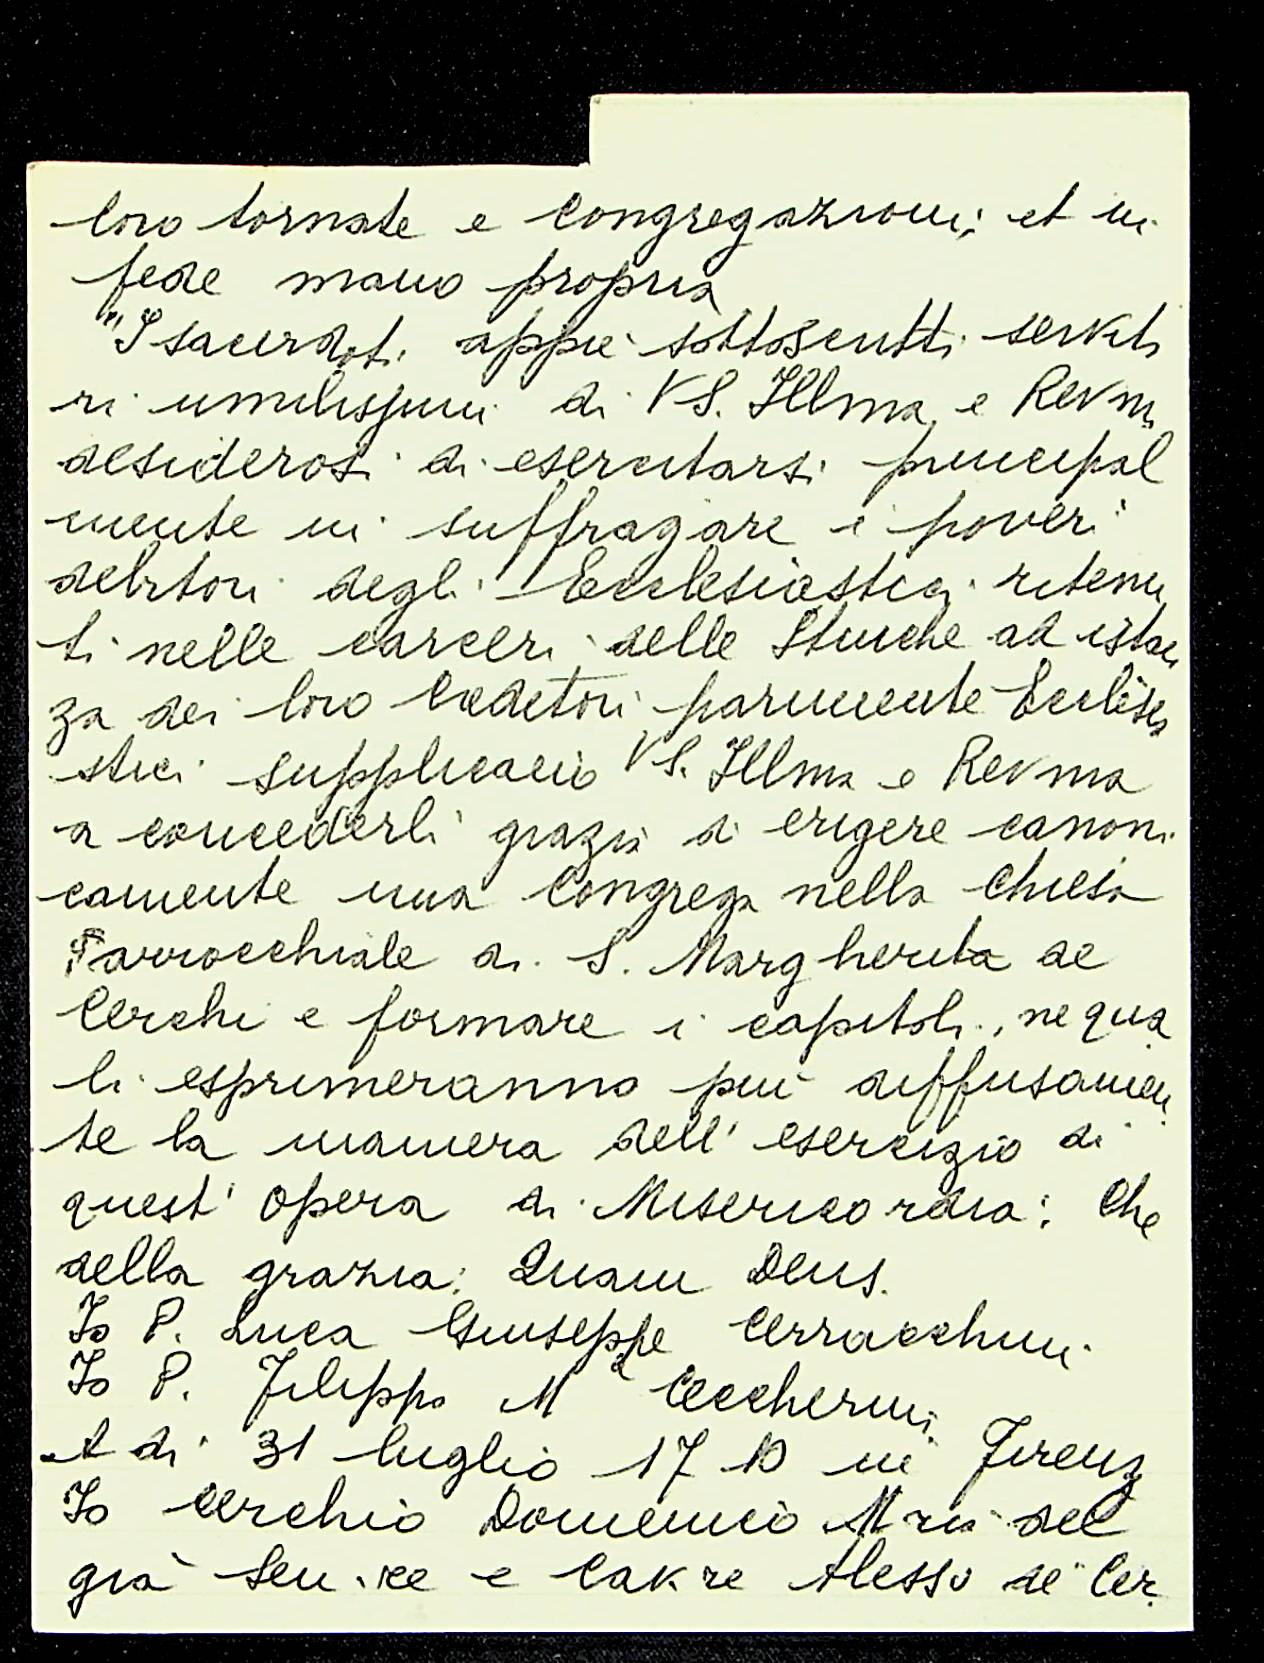 loro tornate e Congregazioni; et in
fede mano propria
"I sacerdoti appiè sottoscritti servito
ri umilissimi di VS. Illma e Revm
desiderosi di esercitarsi principal
mente in suffragare i poveri
debitori degli Ecclesiastici ritenu
ti nelle carceri delle Stinche ad istan
za dei loro Creditori parimente Ecclesia
stici supplicano VS. Illma e Revma
a concederli grazia di erigere canoni
camente una Congrega nella Chiesa
Parrocchiale di S. Margherita de
Cerchi e formare i capitoli, ne qua
li esprimeranno più diffusamen
te la maniera dell' esercizio di
quest' opera di Misericordia: Che
della grazia: Quam Deus.
Io P. Luca Giuseppe Cerracchini
Io P. Filippo Ma Ceccherini
A di 31 luglio 17 10 in Firenz
Io Cerchio Domenico Mria del
già Sen. re e Cav. re Alesso de Cer